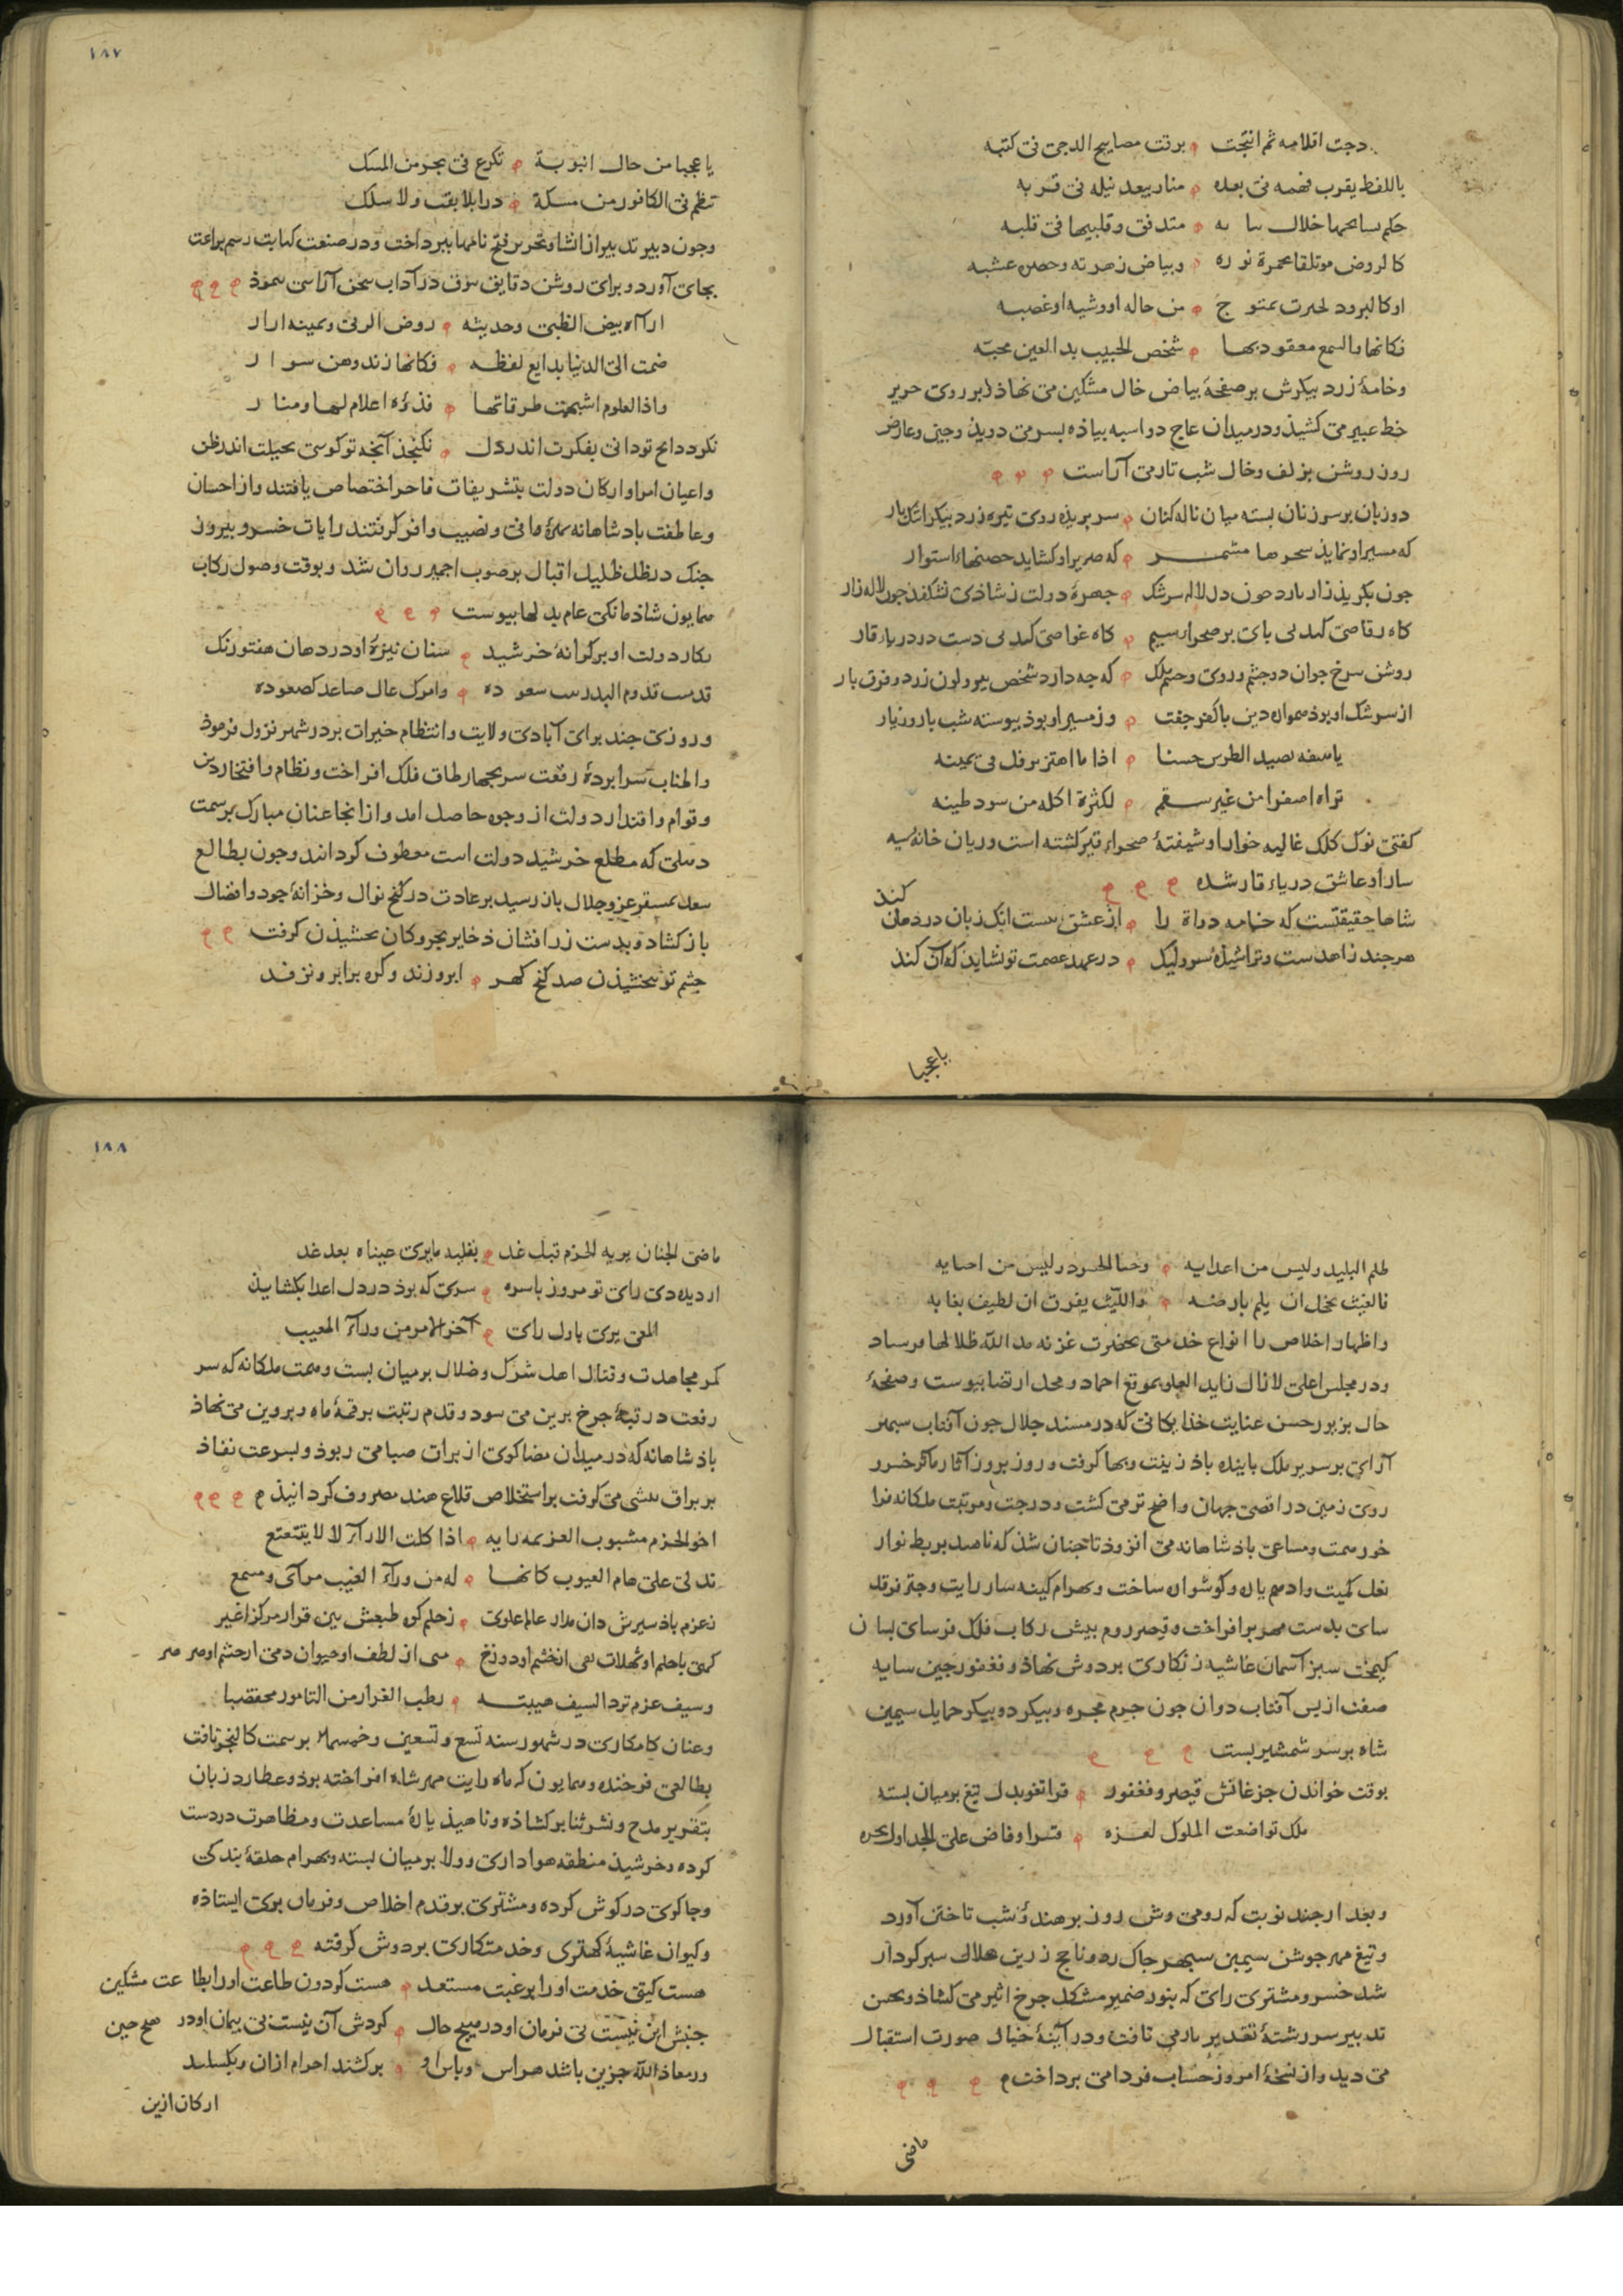 دجت اقلامه ثم انتجت برقت مصابیح الدجی فی کتبه
باللفظ یقرب فهمه فی بعده منا ویبعد نیله فی قربه
حکم سابحها خلال متدفق وقلیبها فی قلبه
کالروض موتلقا بحمرة نوره وبیاض زهرته وخضرة عشبه
اوکالبرود تخیرت بمتوج من خاله اووشیه اوعصبه
فکانها والسمع معقود بها شخص الحبیب بدا لعین محبه
وخامهٔ زرد پیکرش بر صفحهٔ بیاض خال مشکین می نهاذ و بر روی حریر
خط عبیر می کشیذ ودر میدان عاج دواسبه بیاذه بسر می دویذ وجبین وعارض
روز روشن بزلف وخال شب تار می آراست
دو زبان بر سر زنان بسته میان ناله کنان سر بریده روی تیره زرد بیکر اشک بار
که مسیر او نماید سحرها که صریر او کشاید حصنهاء استوار
چون بکرید زار دل لاله سرشک چهرهٔ دولت ز شاذی بشکفد چون لاله زار
کاه رقاصی کند بی بای بر صحرا سیم کاه غواصی کند بی دست در دریا قار
روشن سرخ جوان دو چشم و روی و ملک که چه دارد شخص بیر و لون زرد و فرق بار
از سرشک او بوذ همواره دین با کفر جفت وز مسیر او بوذ بیوسته شب با روز یار
یصید الطرس حسنا اذا ما اهتز یرفل فی یمینه
تراه اصفرا من غیر سقم لکثرة اکله من سود طینه
کفتی نوک کلک غالیه خوار او شیفتهٔ صحراء قیر کشته است وزبان خانهٔ سیه
سار او عاشق دریاء قار شده
شاها حقیقتست که خامه دواة را از عشق تست انک زبان در دهان کند
هرچند زاهدست وتراشیذه سر ولیک در عهد عصمت تو نشاید که آن کند
یا عجبا
۱۸۷
یا عجبا من حال انبوبة تکرع فی بحر من المسک
تنظم فی الکافور من مسکة درا بلا بقب ولا سلک
وچون دبیر تدبیر از انشا وتحریر فتح نامها ببرداخت ودر صنعت کتابت رسم براعت
بجای آورد و برای روشن دقایق در آداب سخن آرایی بنموذ
اراه بیض الظبی وحدیثه روض الربی ویمینه
ضمت الی الدنیا بدایع لفظه فکانها زند وهن سوار
واذا العلوم اشبهت طرقاتها فذکره اعلام لها ومنار
نکردد انچ تو دانی بفکرت اندر دل نکنجذ آنچه تو کوئی بحیلت اندر ظن
واعیان امرا وارکان دولت بتشریفات فاخر اختصاص یافتند واز احسان
وعاطفت باد شاهانه بهرهٔ وافی ونصیب وافر کرفتند رایات خسرو بیروز
جنک در ظل ظلیل اقبال بر صوب اجمیر روان شد و بوقت وصول رکاب
همایون شاذمانکی عام بدلها بیوست
دولت او بر کرانهٔ خرشید سنان نیزهٔ او در دهان هفتورنک
قدمت قدوم البدر بیت سعوده وامرک عال صاعد کصعوده
وروزی چند برای آبادی ولایت وانتظام خیرات بر در شهر نزول فرموذ
واطناب سرابردهٔ رفعت سر بچهار طاق فلک افراخت ونظام وافتخار دین
وقوام واقتدار دولت از وجوه حاصل امد واز انجا عنان مبارک بر سمت
دهلی که مطلع خرشید دولت است معطوف کردانند وچون بطالع
سعد بمستقر عز وجلال باز رسید بر عادت در کنج نوال وخزانهٔ جود وافضال
باز کشاد وبدست زر افشان ذخایر بحر وکان بخشیذن کرفت
چشم تو ببخشیذن صد کنج کهر ابرو نزند وکره برابرو نزند
ظلم البلید ولیس من اعدایه وجنا الحسود ولیس من احبایه
فالغیث یبخل ان یلم بارضه واللیث یفرق ان یطیف بغابه
واظهار اخلاص را انواع خدمتی بحضرت غزنه مد الله ظلالها فرستاد
ودر مجلس اعلی لازال زاید العلو بموقع احماد ومحل ارتضا بیوست وصفحهٔ
حال بزیور حسن عنایت خذایکانی که در مسند جلال چون آفتاب سپهر
آرای بر سریر ملک باینده باذ زینت وبها کرفت وروز بروز آثار مآثر خسرو
روی زمین در اقصی جهان واضح تر می کشت ودرجت ومرتبت ملکانه فرا
خور همت ومساعی باذ شاهانه می افزوذ تا چنان شذ که ناهید بربط نواز
نعل کمیت وادهم یاره وکوشواره ساخت وبهرام کینه ساز رایت وچتر فرقد
سای بدست مهر برافراخت وقیصر روم بیش رکاب فلک فرسای بسان
کیمخت سبز آسمان غاشیه زنکاری بر دوش نهاذ وفغفور چین سایه
صفت از بس آفتاب دوان چون جرم مجره وبیکر دو بیکر حمایل سیمین
شاه بر سر شمشیر بست
بوقت خواندن جز غانش قیصر وفغفور قرا تغو بدل تیغ بر میان بسته
ملک تواضعت الملوک لعزه قسرا وفاض علی الجداول بحره
وبعد از چند نوبت که رومی وش روز بر هندؤ شب تاختن آورد
وتیغ مهر جوشن سیمین سپهر چاک زد وناچخ زرین هلال سپر کردار
شد خسرو مشتری رای که بنور ضمیر مشکل چرخ اثیر می کشاذ وبحسن
تدبیر سررشتهٔ تقدیر باز می تافت ودر آینهٔ خیال صورت استقبال
می دید واز نسخهٔ امروز حساب فردا می برداخت
ماضی
۱۸۸
ماضی الجنان یریه الحزم قبل غد بقلبه ما یری عیناه بعد غد
از دیده دی رای تو مروز باسره سری که بوذ در دل اعدا بکشاید
المعی یری باول رای آخر الامر من ورآء المغیب
کمر مجاهدت وقتال اهل شرک وضلال بر میان بست وهمت ملکانه که سر
رفعت در تبهٔ چرخ برین می سود وقدم رتبت بر قمهٔ ماه وپروین می نهاذ
باذ شاهانه که در میدان مضا کوی از براق صبا می ربوذ وبسرعت نفاذ
بر براق بیشی می کرفت بر استخلاص قلاع هند مصروف کردانیذ
اخو الحزم مشبوب العزیمه رایه اذا کلت الارآء لا لا یتتعتع
تدلی علی هام الغیوب کانها له من ورآء الغیب مرآی ومسمع
ز عزم باذ سیرش دان مدار عالم علوی ز حلم که طبعش بین قرار مرکز اغبر
وسیف عزم ترد السیف هیبته رطب الغرار من التامور مختضبا
وعنان کامکاری در شهور سنه تسع وتسعین وخمسمایه بر سمت کالنجر تافت
بطالعی فرخنده وهمایون که ماه رایت مهر شاه افراخته بوذ وعطارد زبان
بتقریر مدح ونشر ثنا بر کشاذه وناهیذ یارهٔ مساعدت ومظاهرت در دست
کرده وخرشیذ منطقه هواداری وولا بر میان بسته وبهرام حلقهٔ بندکی
وچاکری در کوش کرده ومشتری بر قدم اخلاص وفرمان بری ایستاذه
وکیوان غاشیهٔ کهتری وخدمتکاری بر دوش کرفته
هست کیتی خدمت او را برغبت مستعد هست کردون طاعت او را بطاعت مشکین
جنبش این نیست بی فرمان او در هیچ حال کردش آن نیست بی بیمان او در هیچ حین
ور معاذ الله جزین باشد هراس وباس او بر کشند اجرام ازان وبکسلند
ارکان ازین